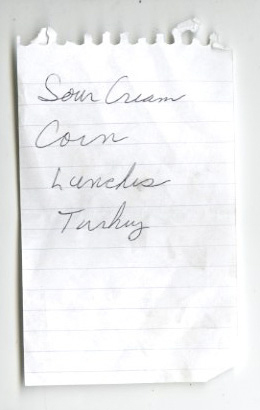 Sour Cream
Corn
Lunches
Turkey